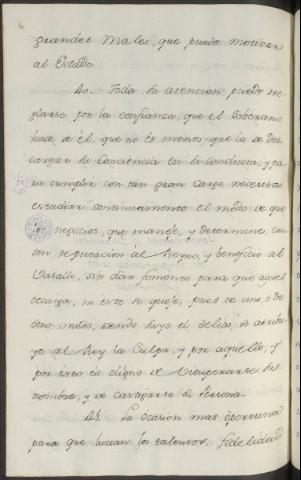 grandes males, que puede motivar
al Estado.
40. Toda su atencion, puede
por la confianza, que el Soberano
hace de él, que no es menos, que la de des-
cargar su Conciencia en su conducta, y pa-
ra cumplir con tan gran Cargo, necesita
estudiar continuamente el modo de que
los negocios, que maneje, y determine, cau-
sen reputacion al Reyno, y beneficio al
Vasallo, sin dar fomento para que aquel
decaiga, ni este se queje, pues de uno, ò de
otro modo, siendo suyo el delito, se atribu-
ye al Rey la Culpa, y por aquello, y
por esto es digno de Vituperarse su
nombre, y de castigarse su Persona.
41. La ocasion mas oportuna
para que luzcan los talentos, fidelidad